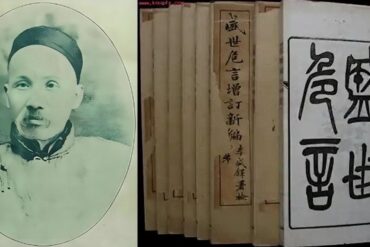 盛世危言增訂新編
盛世
危言